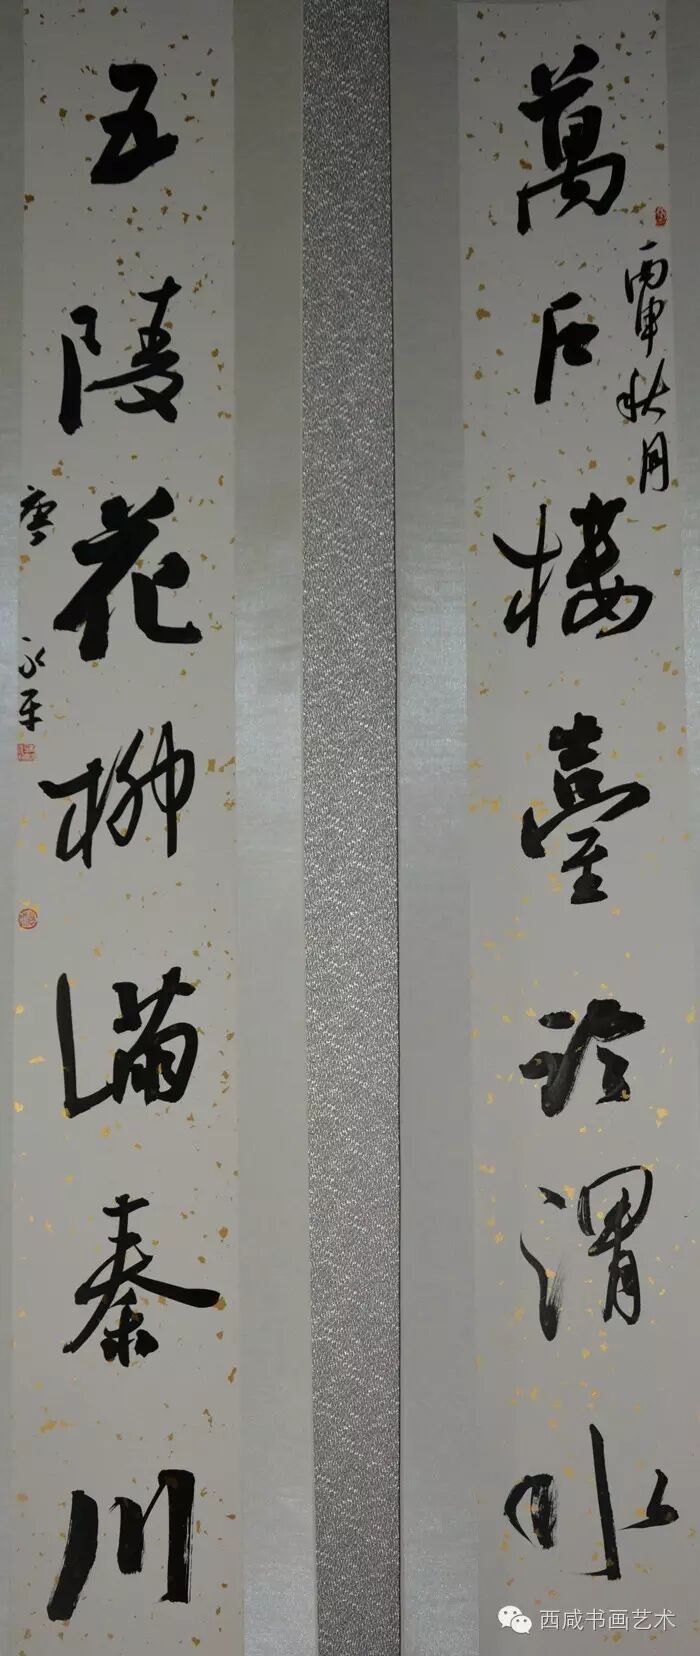 萬户樓臺臨渭水
丙申秋月
五陵花柳滿秦川
永平
西咸书画艺术